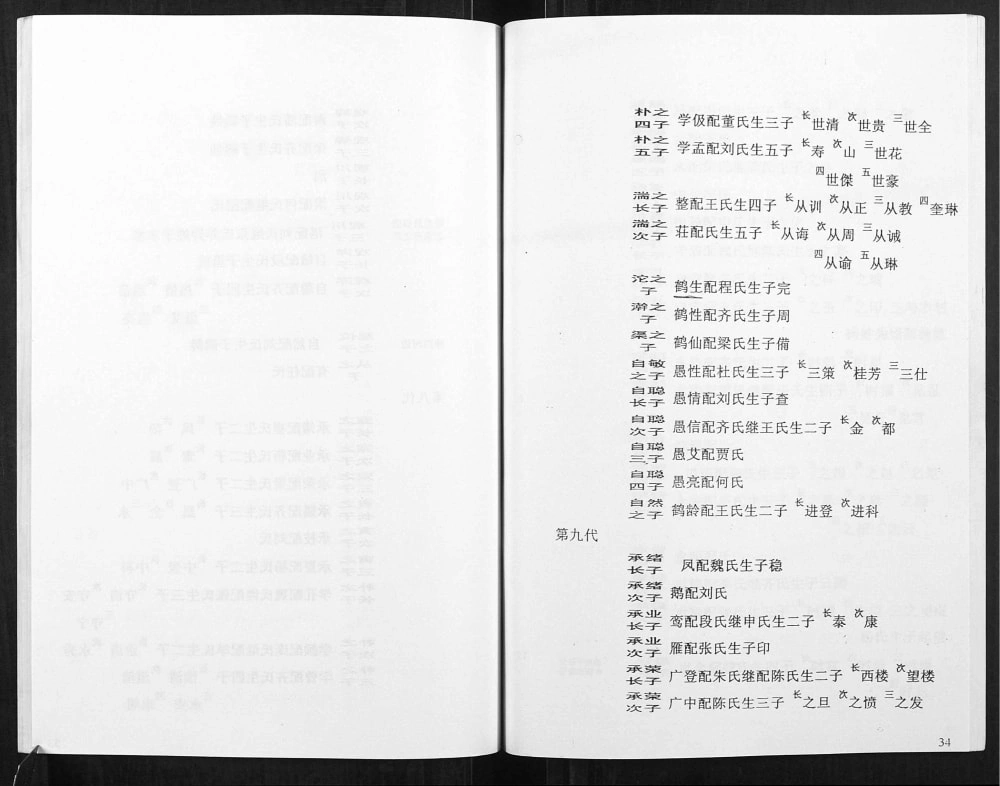 朴之四子 学伋配董氏生三子 长世清 次世贵 三世全
朴之五子 学孟配刘氏生五子 长寿 次山 三世花
四世傑 五世豪
湍之长子 整配王氏生四子 长从训 次从正 三从教 四奎琳
湍之次子 荘配氏生五子 长从诲 次从周 三从诚
四从谕 五从琳
沱之子 鹤生配程氏生子完
澣之子 鹤性配齐氏生子周
渠之子 鹤仙配梁氏生子備
自敏之子 愚性配杜氏生三子 长三策 次桂芳 三三仕
自聪长子 愚情配刘氏生子查
自聪次子 愚信配齐氏继王氏生二子 长金 次都
自聪三子 愚艾配贾氏
自聪四子 愚亮配何氏
自然之子 鹤龄配王氏生二子 长进登 次进科
第九代
承绪长子 凤配魏氏生子稳
承绪次子 鹅配刘氏
承业长子 鸾配段氏继申氏生二子 长泰 次康
承业次子 雁配张氏生子印
承荣长子 广登配朱氏继配陈氏生二子 长西楼 次望楼
承荣次子 广中配陈氏生三子 长之旦 次之愤 三之发
34